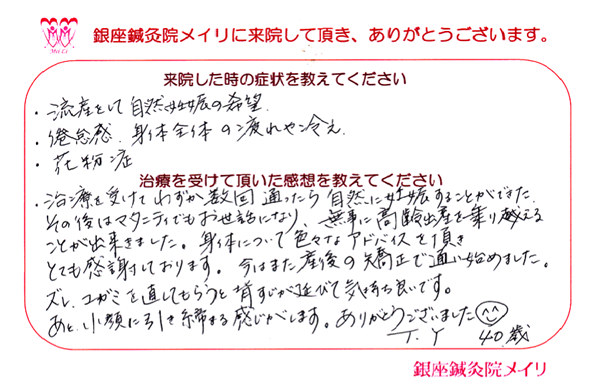 銀座鍼灸院メイリに来院して頂き、ありがとうございます。
Mei Li
来院した時の症状を教えてください
・流産をして自然妊娠の希望
・倦怠感、身体全体の疲れや冷え
・花粉症
治療を受けて頂いた感想を教えてください
・治療を受けてわずか数回通ったら自然に妊娠することができた。
その後はマタニティでもお世話になり、無事に高齢出産を乗り越える
ことが出来きました。身体について色々なアドバイスを頂き
とても感謝しております。今はまた産後の矯正で通い始めました。
ズレ、ユガミを直してもらうと背すじが延びて気持ち良いです。
あと、小顔に引き締まる感じがします。ありがとうございました
T.Y 40歳
銀座鍼灸院メイリ